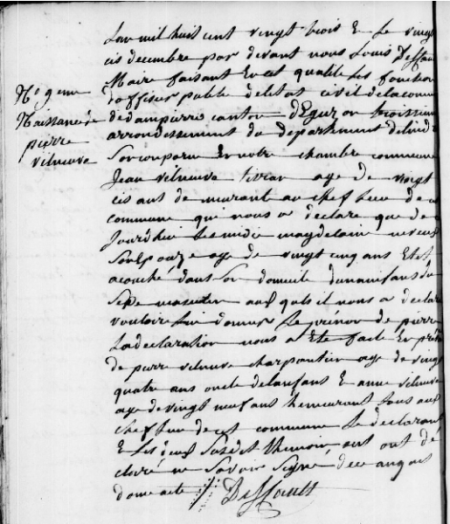 N° 9eme
Naissance de
pierre
vilneuva
L'an mil huit cent vingt trois E Le vingt
cis decembre par devant nous Louis Desfou
Maire faisant En cet qualite Les fonction
d'offiser public de letat civil de la comm
de dampierre canton d'Eguzon troissieme
arrondissement du departement de lindr
Son conparu En notre chambre commune
Jean vilneuva age de vingt
cis ans demeurant au chef lieu de
commune qui nous a declare que de
Jourd'hui Les midi magdelaine
Son Epouze age de vingt cinq ans Etet
acouché dans Son domicile dun anfans du
Sexe masculin auquels il nous a declare
vouloir Lui donner Le prénon de pierre
La declaration nous a Eté faite En pré
de pierre vilneuve charpantier age de vingt
quatre ans oncle de lanfans E anne vilneuve
age de vingt neuf ans demeurant tous au
chef lieu de cet commune Le declarant
E Les deux Susdit thémoin ont
claré ne Savoir Signe
done acte
Desfouts